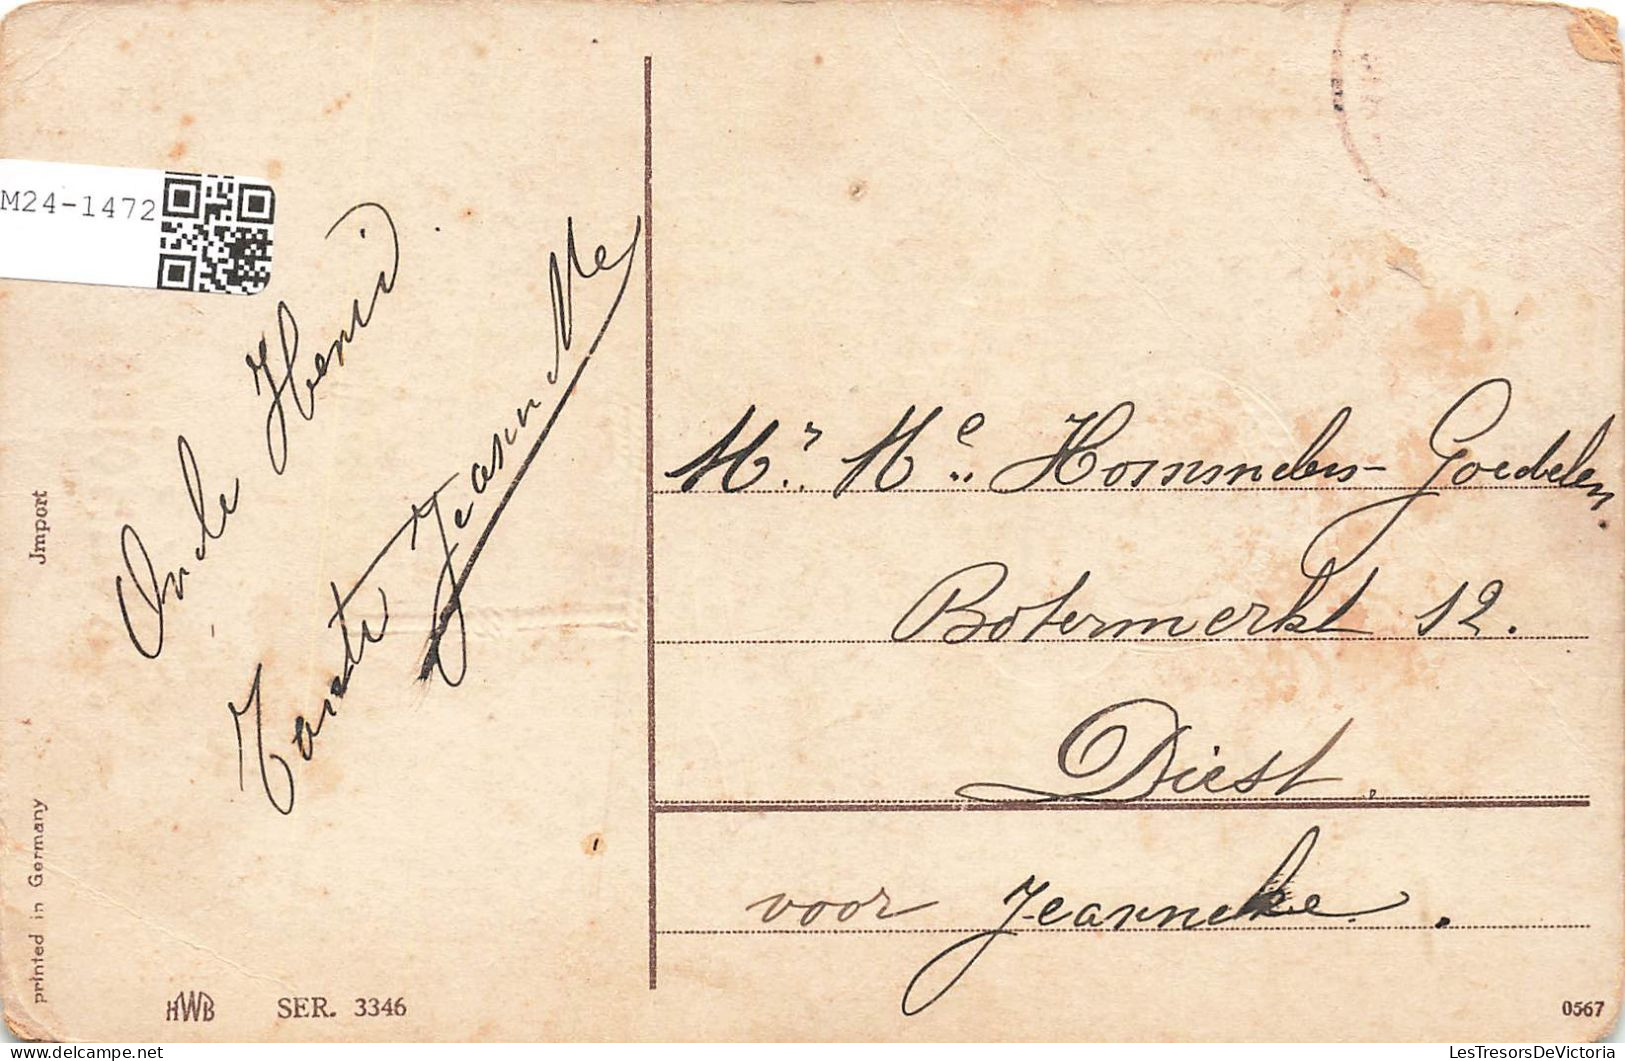 M24-1472
Oncle Henri.
Tante Jeann
Mr. Me. Hommelen - Goedelen.
Botermerkt 12.
Diest.
voor Jeanneke.
Jmport
printed in Germany
HWB SER. 3346
0567
LesTresorsDeVictoria